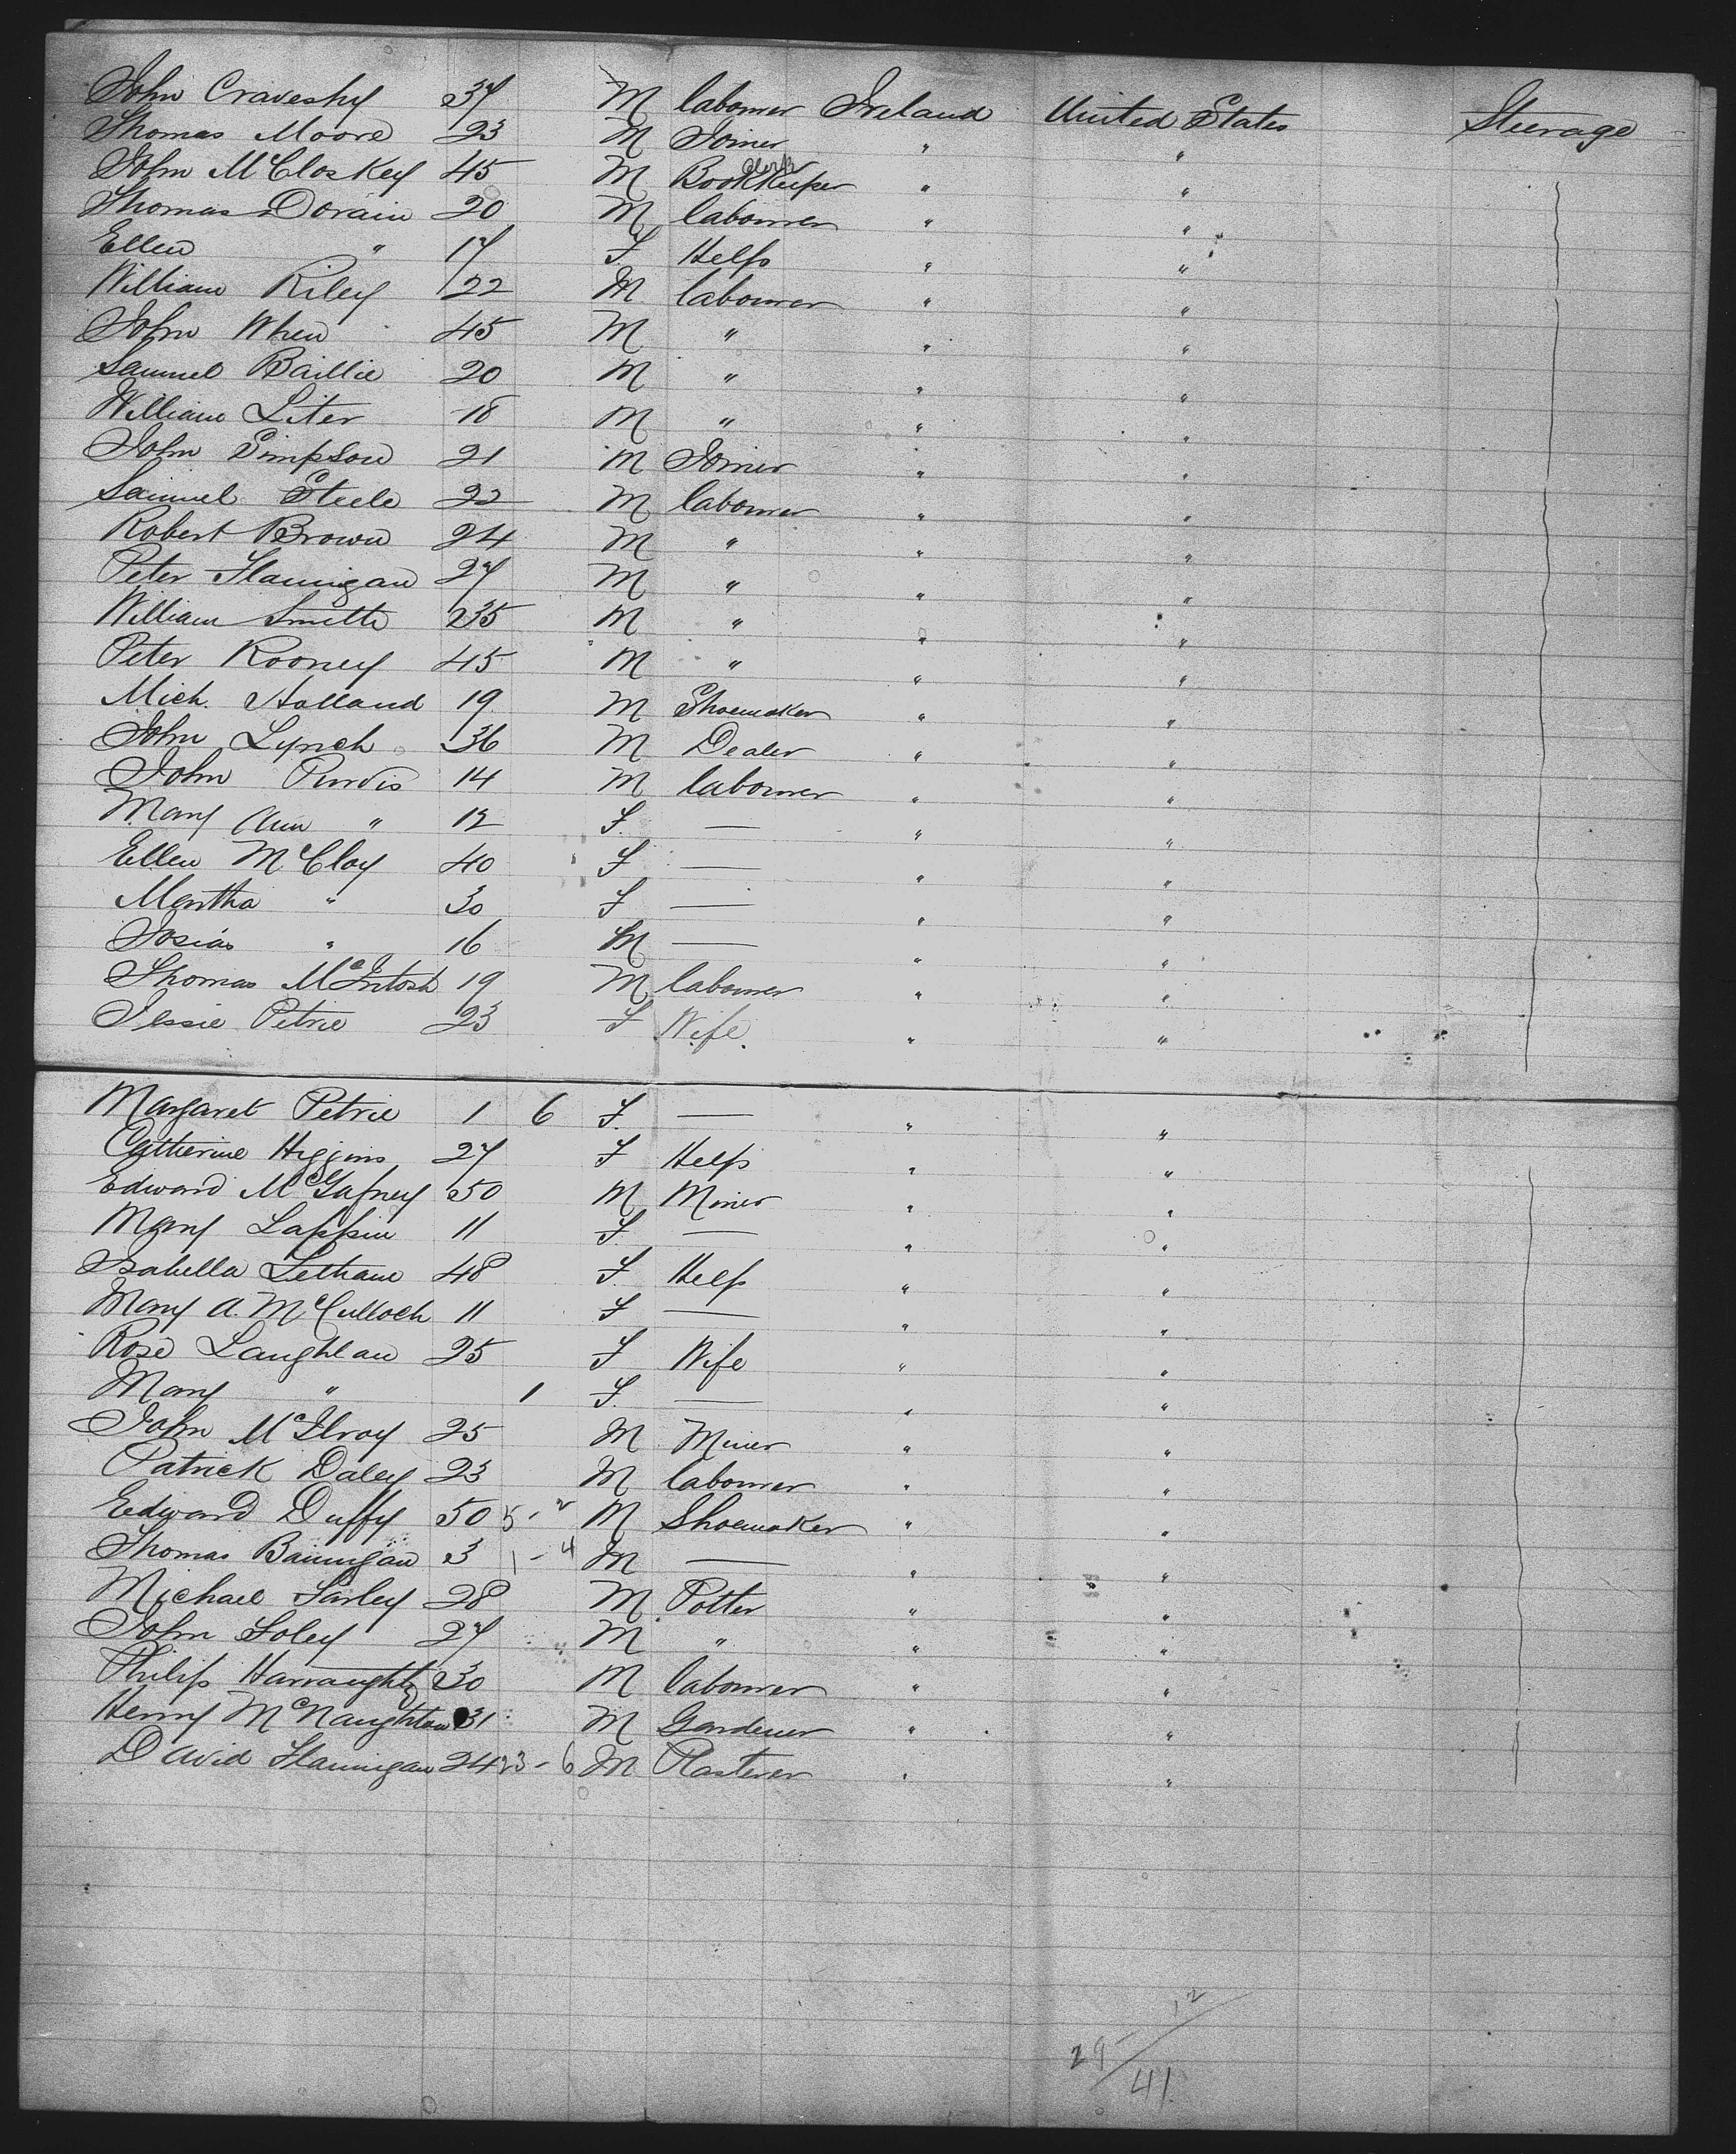 John Craveshy 37 M labourer Ireland United States Steerage
Thomas Moore 23 M Joiner " "
John McCloskey 45 M Bookkeeper clerk " "
Thomas Dorain 20 M labourer " "
Ellen " 17 F Help " "
William Riley 22 M labourer " "
John When 45 M " " "
Samuel Baillie 20 M " " "
William Liter 18 M " " "
John Simpson 21 M Joiner " "
Samuel Steele 22 M labourer " "
Robert Brown 24 M " " "
Peter Flannigan 27 M " " "
William Smith 35 M " " "
Peter Rooney 45 M " " "
Mich. Holland 19 M Shoemaker " "
John Lynch 36 M Dealer " "
John Purvis 14 M labourer " "
Mary Ann " 12 F. — " "
Ellen McCloy 40 F — " "
Martha " 30 F — " "
Josias " 16 M — " "
Thomas McIntosh 19 M labourer " "
Jessie Petrie 23 F Wife. " "
Margaret Petrie 1 6 F. — " "
Catherine Higgins 27 F Help " "
Edward McGafney 50 M Miner " "
Mary Lappin 11 F. — " "
Isabella Lethane 48 F. Help " "
Mary A. McCulloch 11 F — " "
Rose Laughlan 25 F Wife " "
Mary " 1 F. — " "
John McIlroy 25 M Miner " "
Patrick Daley 23 M labourer " "
Edward Duffy 50 5-2 M Shoemaker " "
Thomas Bannigan 3 1-4 M — " "
Michael Farley 28 M Potter " "
John Foley 27 M " " "
Philip Harraughty 30 M labourer " "
Henry McNaughton 31 M Gardener " "
David Flannigan 24 23-6 M Plasterer " "
29 - 12
41